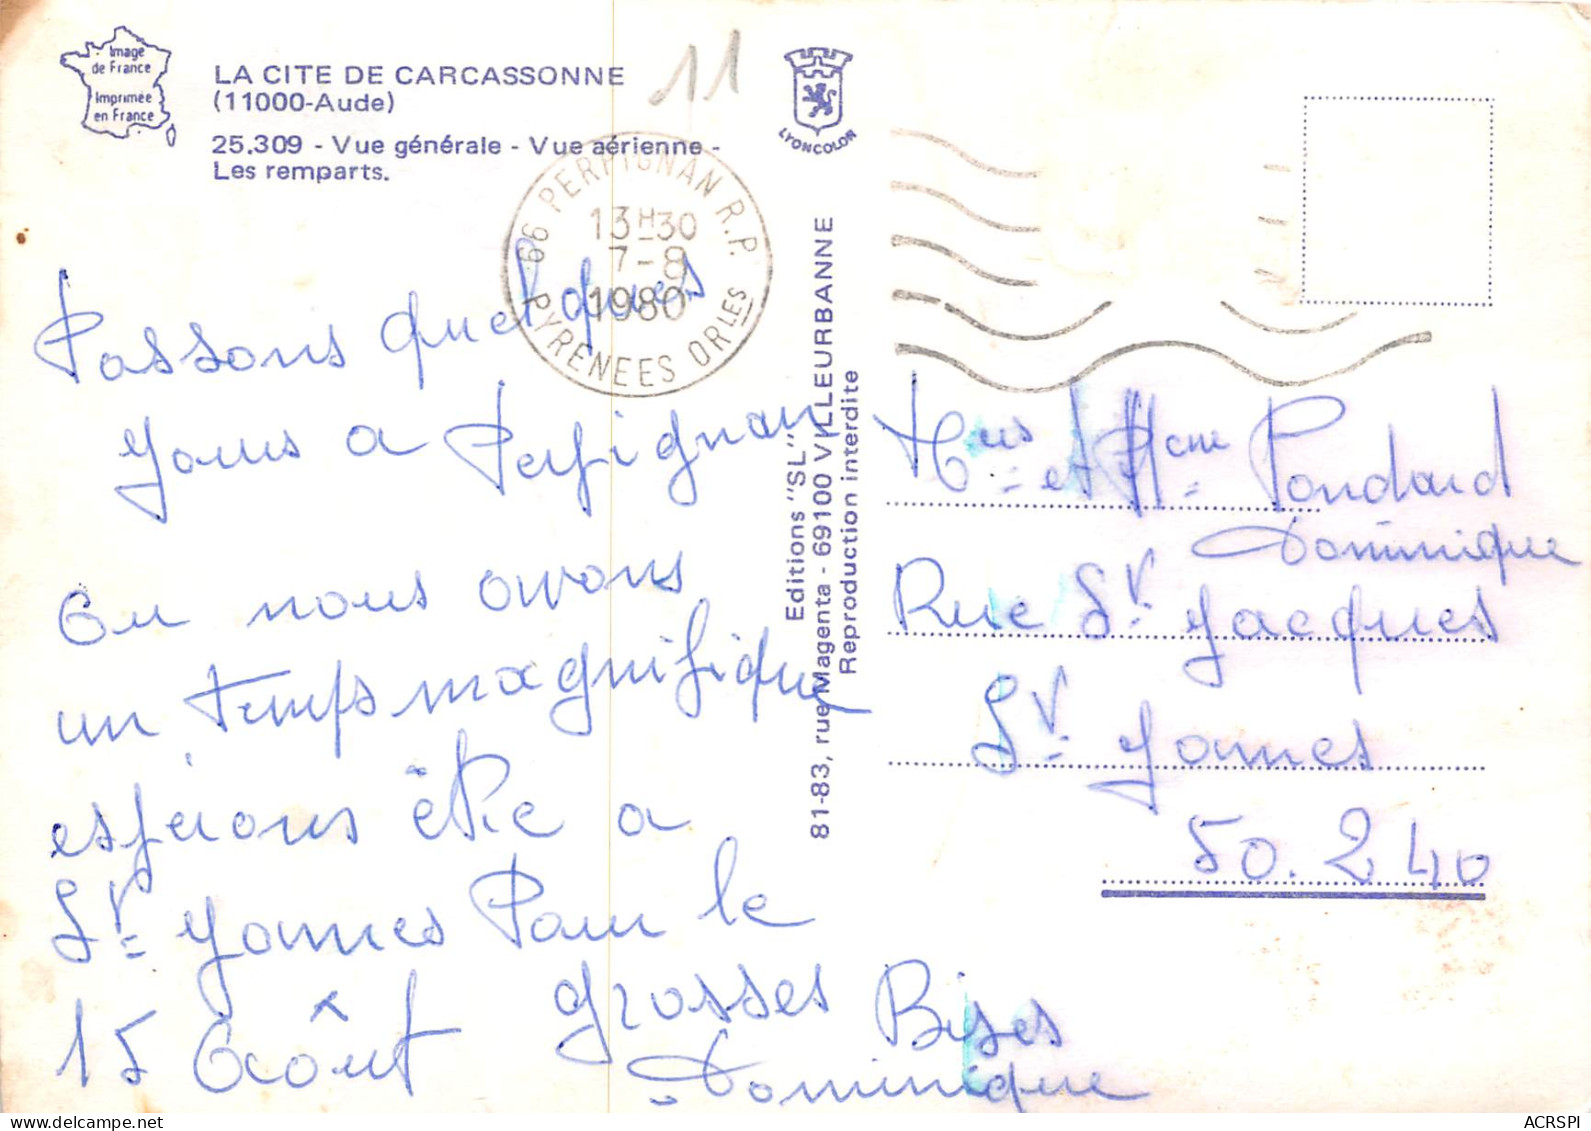 Image
de France
Imprimée
en France
LA CITE DE CARCASSONNE
(11000-Aude)
25.309 - Vue générale - Vue aérienne -
Les remparts.
11
LYONCOLOR
66 PERPIGNAN R.P.
13H30
7-8
1980
PYRENEES ORLES
Passons quelques
Jours a Perpignan
Ou nous avons
un temps magnifique
espérons être a
St James Pour le
15 Août grosses Bises
Dominique
Editions "SL"
81-83, rue Magenta - 69100 VILLEURBANNE
Reproduction interdite
et Pondard
Dominique
Rue St Jacques
St James
50.240
ACRSPI